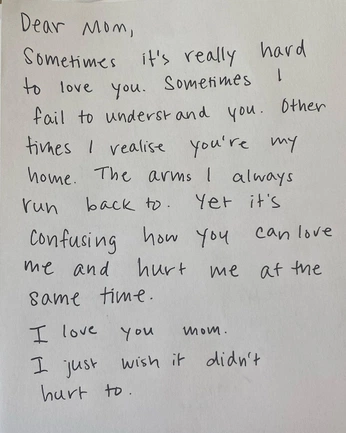 Dear Mom,
Sometimes it's really hard
to love you. Sometimes I
fail to understand you. Other
times I realise you're my
home. The arms I always
run back to. Yet it's
confusing how you can love
me and hurt me at the
same time.
I love you mom.
I just wish it didn't
hurt to.